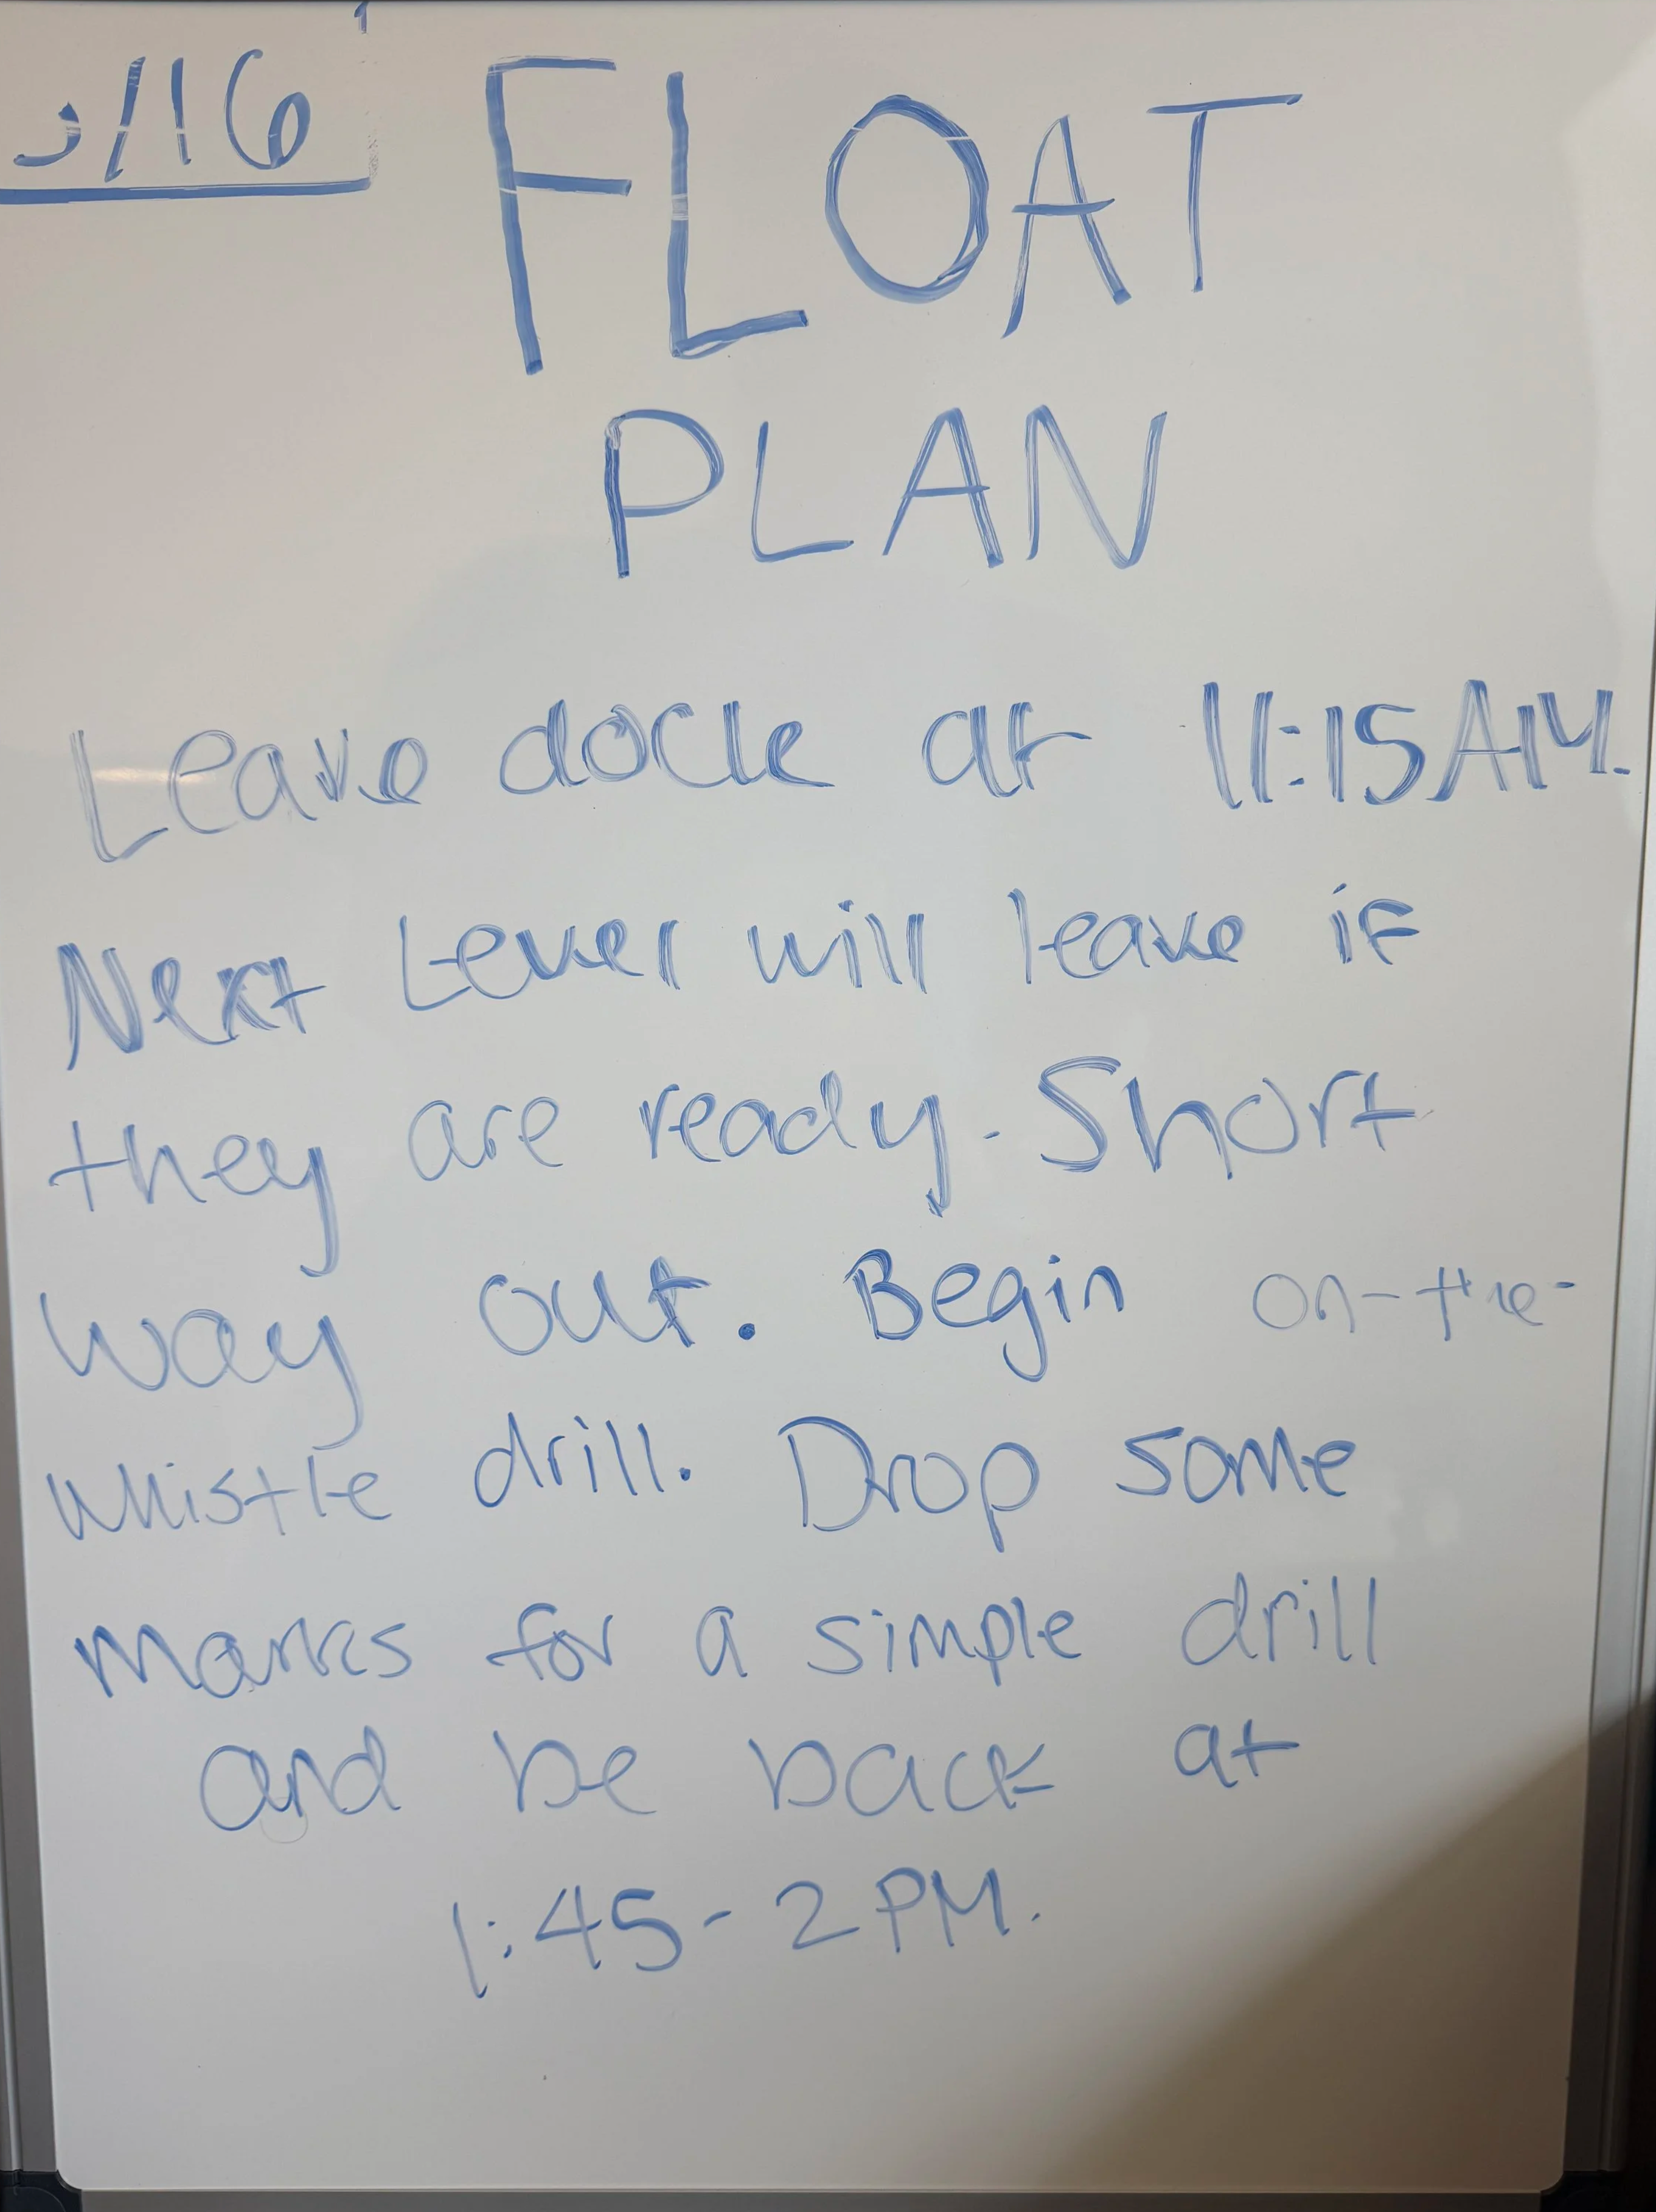 /16
FLOAT
PLAN
Leave dock at 11:15AM.
Next Level will leave if
they are ready. Short
way out. Begin on-the-
whistle drill. Drop some
marks for a simple drill
and be back at
1:45-2PM.